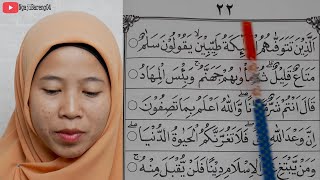 NgajiBareng04
٢٢
الَّذِيْنَ تَتَوَفّٰىهُمُ الْمَلٰۤىِٕكَةُ طَيِّبِيْنَ يَقُوْلُوْنَ سَلٰمٌ
مَتَاعٌ قَلِيْلٌ ثُمَّ مَأْوٰىهُمْ جَهَنَّمُ وَبِئْسَ الْمِهَادُ
قَالَ اَنْتُمْ شَرٌّ مَّكَانًا وَاللّٰهُ اَعْلَمُ بِمَا تَصِفُوْنَ
اِنَّ وَعْدَ اللّٰهِ حَقٌّ فَلَا تَغُرَّنَّكُمُ الْحَيٰوةُ الدُّنْيَا
وَمَنْ يَّبْتَغِ غَيْرَ الْاِسْلَامِ دِيْنًا فَلَنْ يُّقْبَلَ مِنْهُ